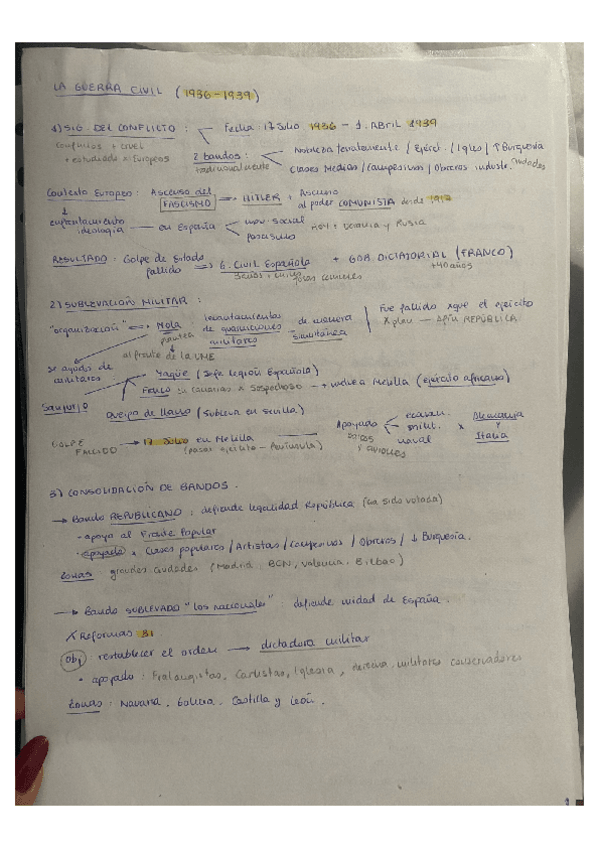 LA GUERRA CIVIL (1936-1939)
1) SIG. DEL CONFLICTO : Fecha : 17 Julio 1936 - 1. Abril 1939
conflictos + CRUEL
+ estudiado x Europeos
2 bandos :
tradicionalmente
Nobleza terrateniente / Ejérct. / Iglesia / ↑ Burguesía
Clases Medias / Campesinos / Obreros industr.
Contexto Europeo : Ascenso del FASCISMO → HITLER + Ascenso al poder COMUNISTA desde 1917
enfrentamiento ideología → en España mov. social
fascismo
RESULTADO : Golpe de Estado fallido ⇒ G. Civil Española + GOB. DICTATORIAL (FRANCO)
3 años
+40 años
2) SUBLEVACIÓN MILITAR :
"organización" ⇐ Mola : levantamientos de guarniciones militares de manera simultánea
plantea
Fue fallido xque el ejército
al frente de la UME
se ayuda de militares
Yagüe (Jefe legión Española)
Franco en Canarias x Sospechoso → vuelve a Melilla (ejército africano)
Sanjurjo
Queipo de Llano (subleva en Sevilla)
GOLPE FALLIDO → 17 Julio en Melilla
(pasar ejército - Península)
Apoyado
barcos y aviones
econom.
milit.
naval
x Alemania y Italia
3) CONSOLIDACIÓN DE BANDOS.
→ Bando REPUBLICANO : defiende legalidad República (ha sido votada)
- apoya al Frente Popular
- apoyado x clases populares / Artistas / Campesinos / Obreros / ↓ Burguesía.
Zonas grandes ciudades (Madrid. BCN, Valencia. Bilbao)
→ Bando SUBLEVADO "los nacionales" : defiende unidad de España.
X Reformas BI
Obj restablecer el orden → dictadura militar
• apoyado : Fralangistas, Carlistas, Iglesia, militares conservadores
Zonas : Navarra. Galicia. Castilla y León.